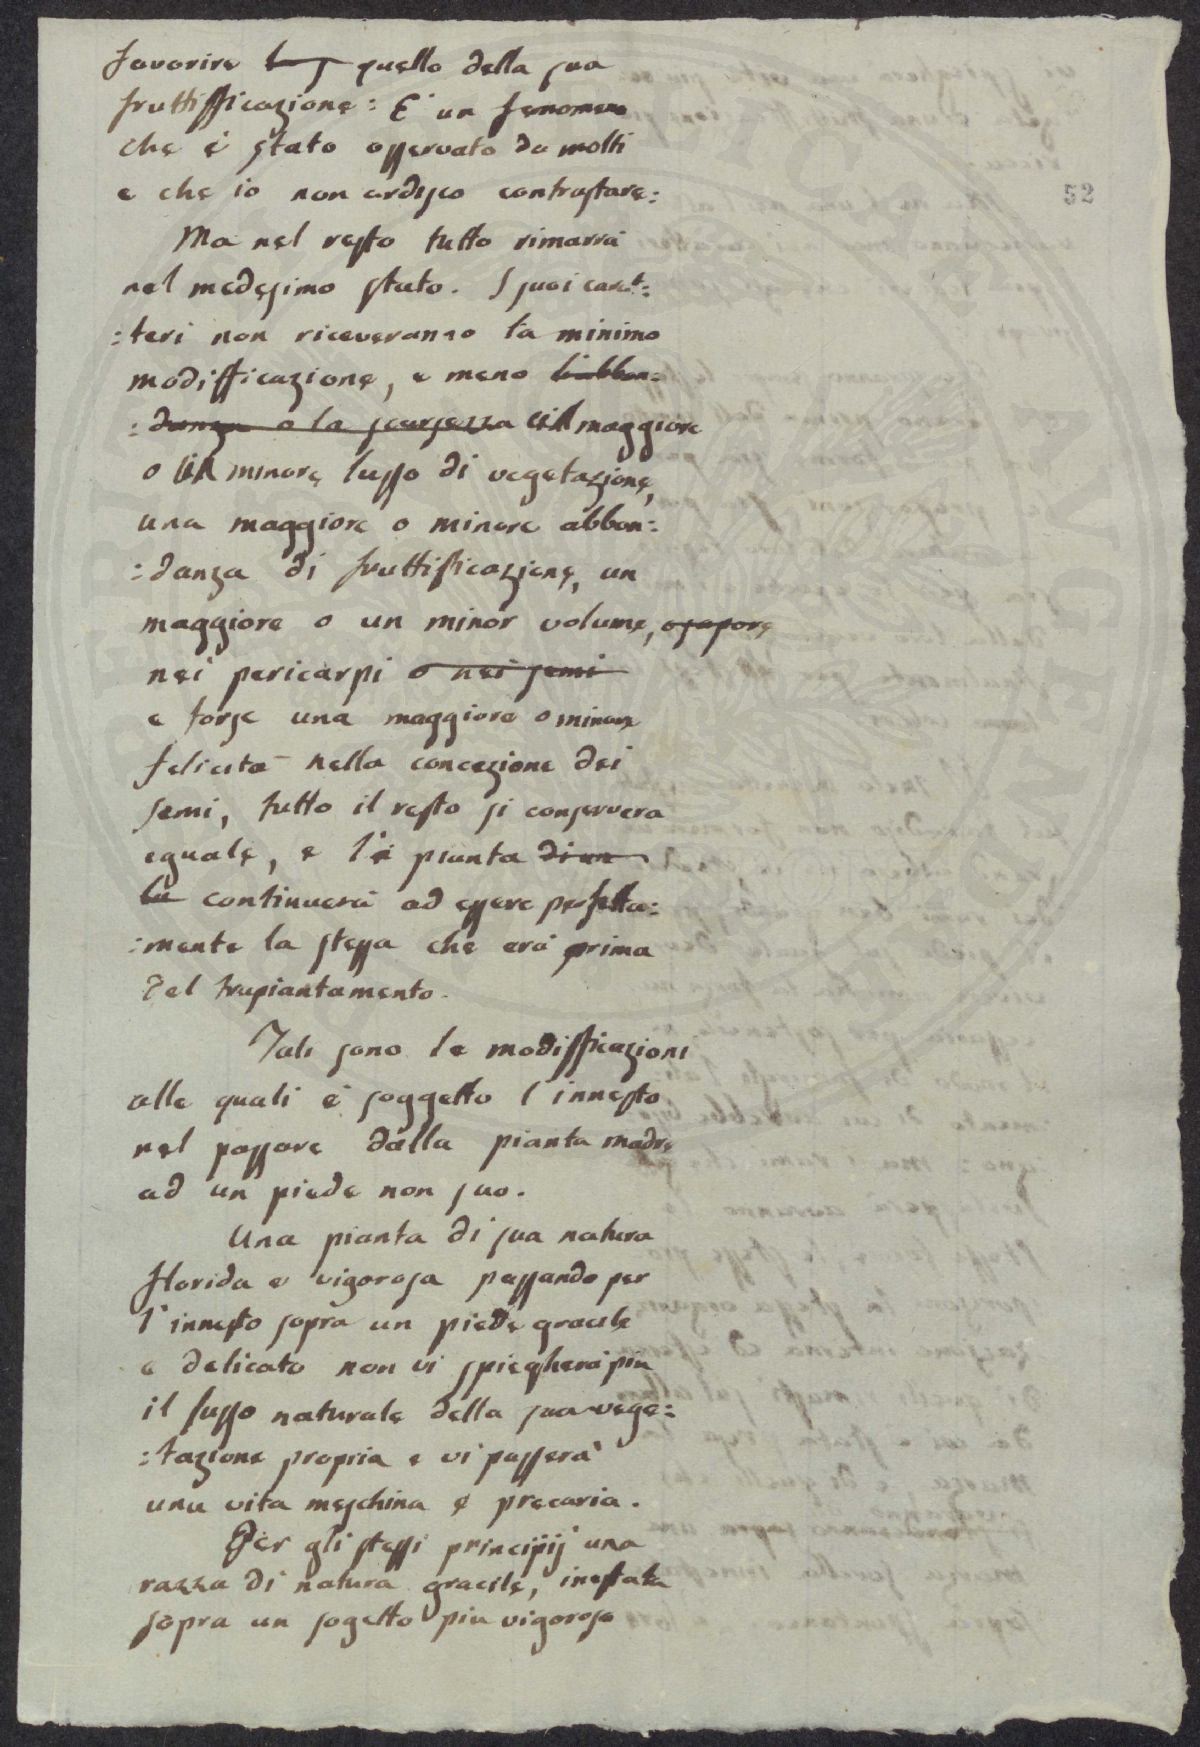 favorire quello della sua
fruttifficazione: E' un fenomeno
che è stato osservato da molti
e che io non ardisco contrastare:
52
Ma nel resto tutto rimarrà
nel medesimo stato. I suoi carat:
:teri non riceveranno la minimo
modifficazione, e meno l'abbon:
:danza o la scarsezza un maggiore
o un minore lusso di vegetazione,
una maggiore o minore abbon:
:danza di fruttificazione, un
maggiore o un minor volume, o sapore
nei pericarpi o nei semi
e forse una maggiore o minore
felicità nella concezione dei
semi, tutto il resto si conserverà
eguale, e la pianta di un
la continuerà ad essere perfetta:
:mente la stessa che era prima
del trapiantamento.
Tali sono le modifficazioni
alle quali è soggetto l'innesto
nel passare dalla pianta madre
ad un piede non suo.
Una pianta di sua natura
florida e vigorosa passando per
l'innesto sopra un piede gracile
e delicato non vi spiegherà più
il lusso naturale della sua vege:
:tazione propria e vi passerà
una vita meschina e precaria.
Per gli stessi principij una
razza di natura gracile, inestata
sopra un sogetto più vigoroso